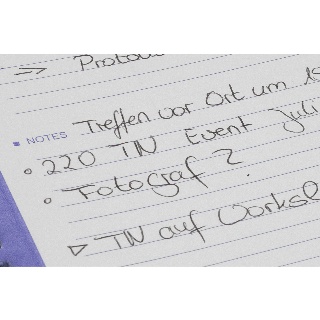 ⇒ Protok
Treffen vor Ort um 15
NOTES
220 TN Event Juli
Fotograf?
▷ TN auf Worksh